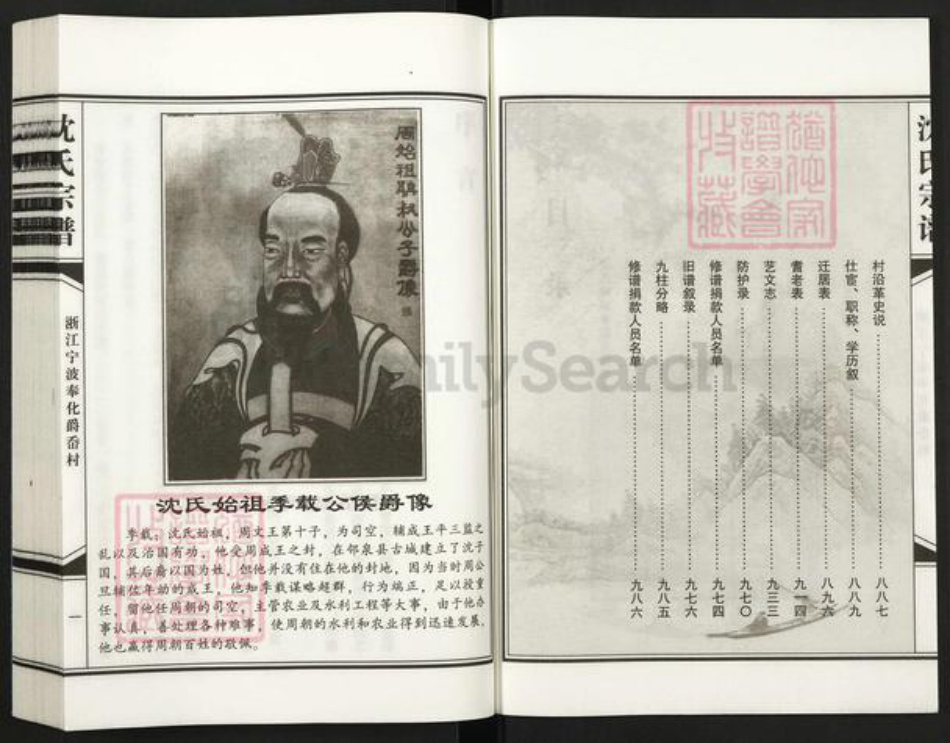 沈氏宗谱
村沿革史说 八八七
仕宦、职称、学历叙 八八九
迁居表 八九六
耆老表 九一四
艺文志 九三三
防护录 九七〇
修谱捐款人员名单 九七四
旧谱叙录 九七六
九柱分略 九八五
修谱捐款人员名单 九八六
FamilySearch
沈氏宗谱
浙江宁波奉化爵岙村
一
周始祖聃叔公子爵像
沈氏始祖季载公侯爵像
季载，沈氏始祖，周文王第十子，为司空，辅成王平三监之
乱以及治国有功，他受周成王之封，在邻泉县古城建立了沈子
国，其后裔以国为姓，但他并没有住在他的封地，因为当时周公
旦辅佐年幼的成王，他知季载谋略超群，行为端正，足以授重
任，留他任周朝的司空，主管农业及水利工程等大事，由于他办
事认真，善处理各种难事，使周朝的水利和农业得到迅速发展，
他也赢得周朝百姓的敬佩。